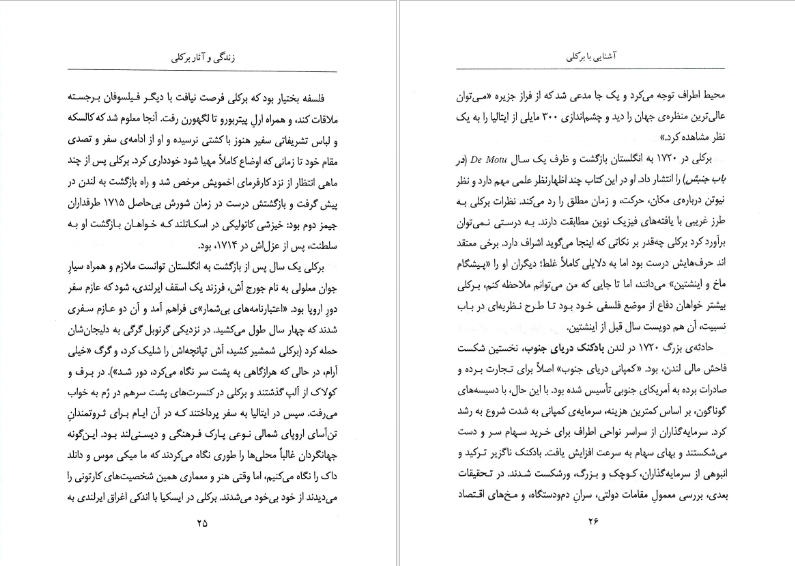 زندگی و آثار برکلی
فلسفه بختیار بود که برکلی فرصت نیافت با دیگر فیلسوفان برجسته
ملاقات کند، و همراه ارلِ پیتربورو تا لگهورن رفت. آنجا معلوم شد که کالسکه
و لباس تشریفاتی سفیر هنوز با کشتی نرسیده و او از ادامه‌ی سفر و تصدی
مقام خود تا زمانی که اوضاع کاملاً مهیا شود خودداری کرد. برکلی پس از چند
ماهی انتظار از نزد کارفرمای اخمویش مرخص شد و راه بازگشت به لندن در
پیش گرفت و بازگشتش درست در زمان شورش بی‌حاصل ۱۷۱۵ طرفداران
جیمز دوم بود: خیزشی کاتولیکی در اسکاتلند که خواهان بازگشت او به
سلطنت، پس از عزل‌اش در ۱۷۱۴، بود.
برکلی یک سال پس از بازگشت به انگلستان توانست ملازم و همراه سیارِ
جوان معلولی به نام جورج اَش، فرزند یک اسقف ایرلندی، شود که عازم سفر
دورِ اروپا بود. «اعتبارنامه‌های بی‌شمار»ی فراهم آمد و آن دو عازم سفری
شدند که چهار سال طول می‌کشید. در نزدیکی گرنوبل گرگی به دلیجان‌شان
حمله کرد (برکلی شمشیر کشید، اَش تپانچه‌اش را شلیک کرد، و گرگ «خیلی
آرام، در حالی که هرازگاهی به پشت سر نگاه می‌کرد، دور شد»). در برف و
کولاک از آلپ گذشتند و برکلی در کنسرت‌های پشت سرهم در رُم به خواب
می‌رفت. سپس در ایتالیا به سفر پرداختند که در آن ایام برای ثروتمندانِ
تن‌آسای اروپای شمالی نوعی پارک فرهنگی و دیسنی‌لند بود. این‌گونه
جهانگردان غالباً محلی‌ها را طوری نگاه می‌کردند که ما میکی موس و دانلد
داک را نگاه می‌کنیم، اما وقتی هنر و معماری همین شخصیت‌های کارتونی را
می‌دیدند از خود بی‌خود می‌شدند. برکلی در ایسکیا با اندکی اغراق ایرلندی به
۲۵
آشنایی با برکلی
محیط اطراف توجه می‌کرد و یک جا مدعی شد که از فراز جزیره «می‌توان
عالی‌ترین منظره‌ی جهان را دید و چشم‌اندازی ۳۰۰ مایلی از ایتالیا را به یک
نظر مشاهده کرد.»
برکلی در ۱۷۲۰ به انگلستان بازگشت و ظرف یک سال De Motu (در
باب جنبش) را انتشار داد. او در این کتاب چند اظهارنظر علمی مهم دارد و نظر
نیوتن درباره‌ی مکان، حرکت، و زمان مطلق را رد می‌کند. نظرات برکلی به
طرز غریبی با یافته‌های فیزیک نوین مطابقت دارند. به درستی نمی‌توان
برآورد کرد برکلی چه‌قدر بر نکاتی که اینجا می‌گوید اشراف دارد. برخی معتقد
اند حرف‌هایش درست بود اما به دلایلی کاملاً غلط؛ دیگران او را «پیشگام
ماخ و اینشتین» می‌دانند، اما تا جایی که من می‌توانم ملاحظه کنم، برکلی
بیشتر خواهان دفاع از موضع فلسفی خود بود تا طرح نظریه‌ای در باب
نسبیت، آن هم دویست سال قبل از اینشتین.
حادثه‌ی بزرگ ۱۷۲۰ در لندن بادکنک دریای جنوب، نخستین شکست
فاحش مالی لندن، بود. «کمپانی دریای جنوب» اصلاً برای تجارت برده و
صادرات برده به آمریکای جنوبی تأسیس شده بود. با این حال، با دسیسه‌های
گوناگون، بر اساس کمترین هزینه، سرمایه‌ی کمپانی به شدت شروع به رشد
کرد. سرمایه‌گذاران از سراسر نواحی اطراف برای خرید سهام سر و دست
می‌شکستند و بهای سهام به سرعت افزایش یافت. بادکنک ناگزیر ترکید و
انبوهی از سرمایه‌گذاران، کوچک و بزرگ، ورشکست شدند. در تحقیقات
بعدی، بررسی معمولِ مقامات دولتی، سرانِ دم‌ودستگاه، و مخ‌های اقتصاد
۲۶